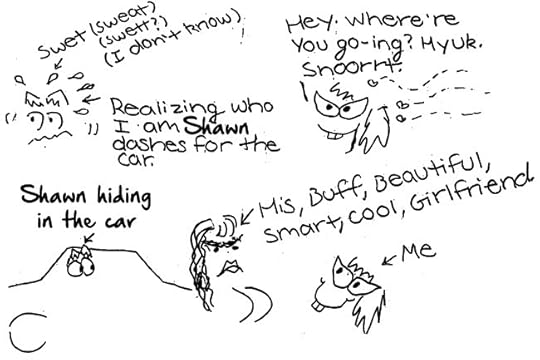 Swet (sweat)
(swett?)
(I don't know)
Realizing who
I am Shawn
dashes for the
car
Hey, where're
You go-ing? Hyuk.
Snoorrt.
Shawn hiding
in the car
His, Buff, Beautiful,
smart, cool, Girlfriend
Me